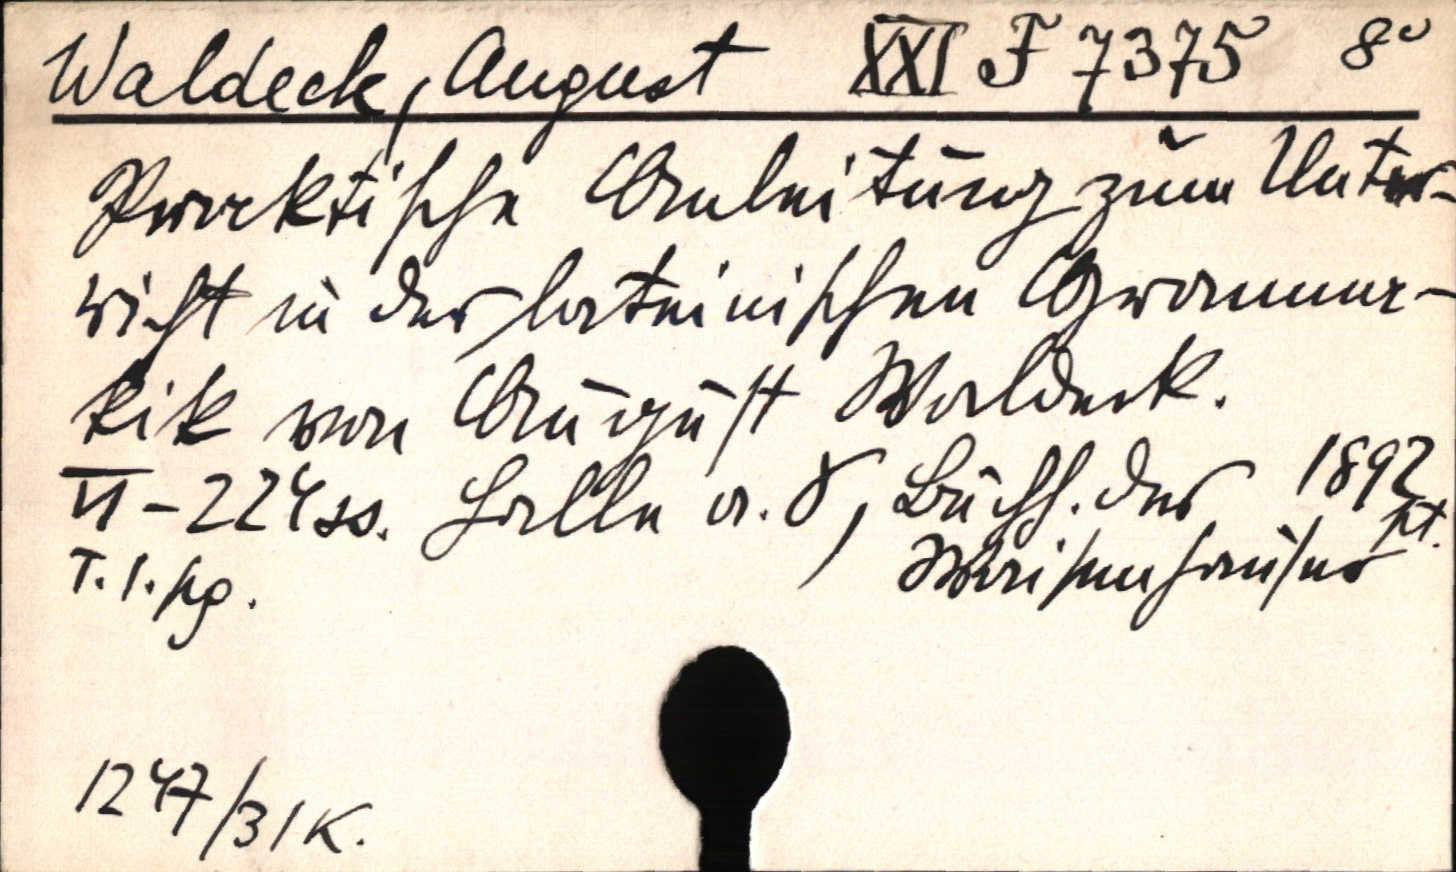 Waldeck, August XXI F 7375 8°
Praktische Anleitung zum Unter-
richt in der lateinischen Gramma-
tik von August Waldeck.
VI-224 ss. Halle a. S, Buchh. der 1892
Waisenhauses
T. 1. kg.
1247/31 K.